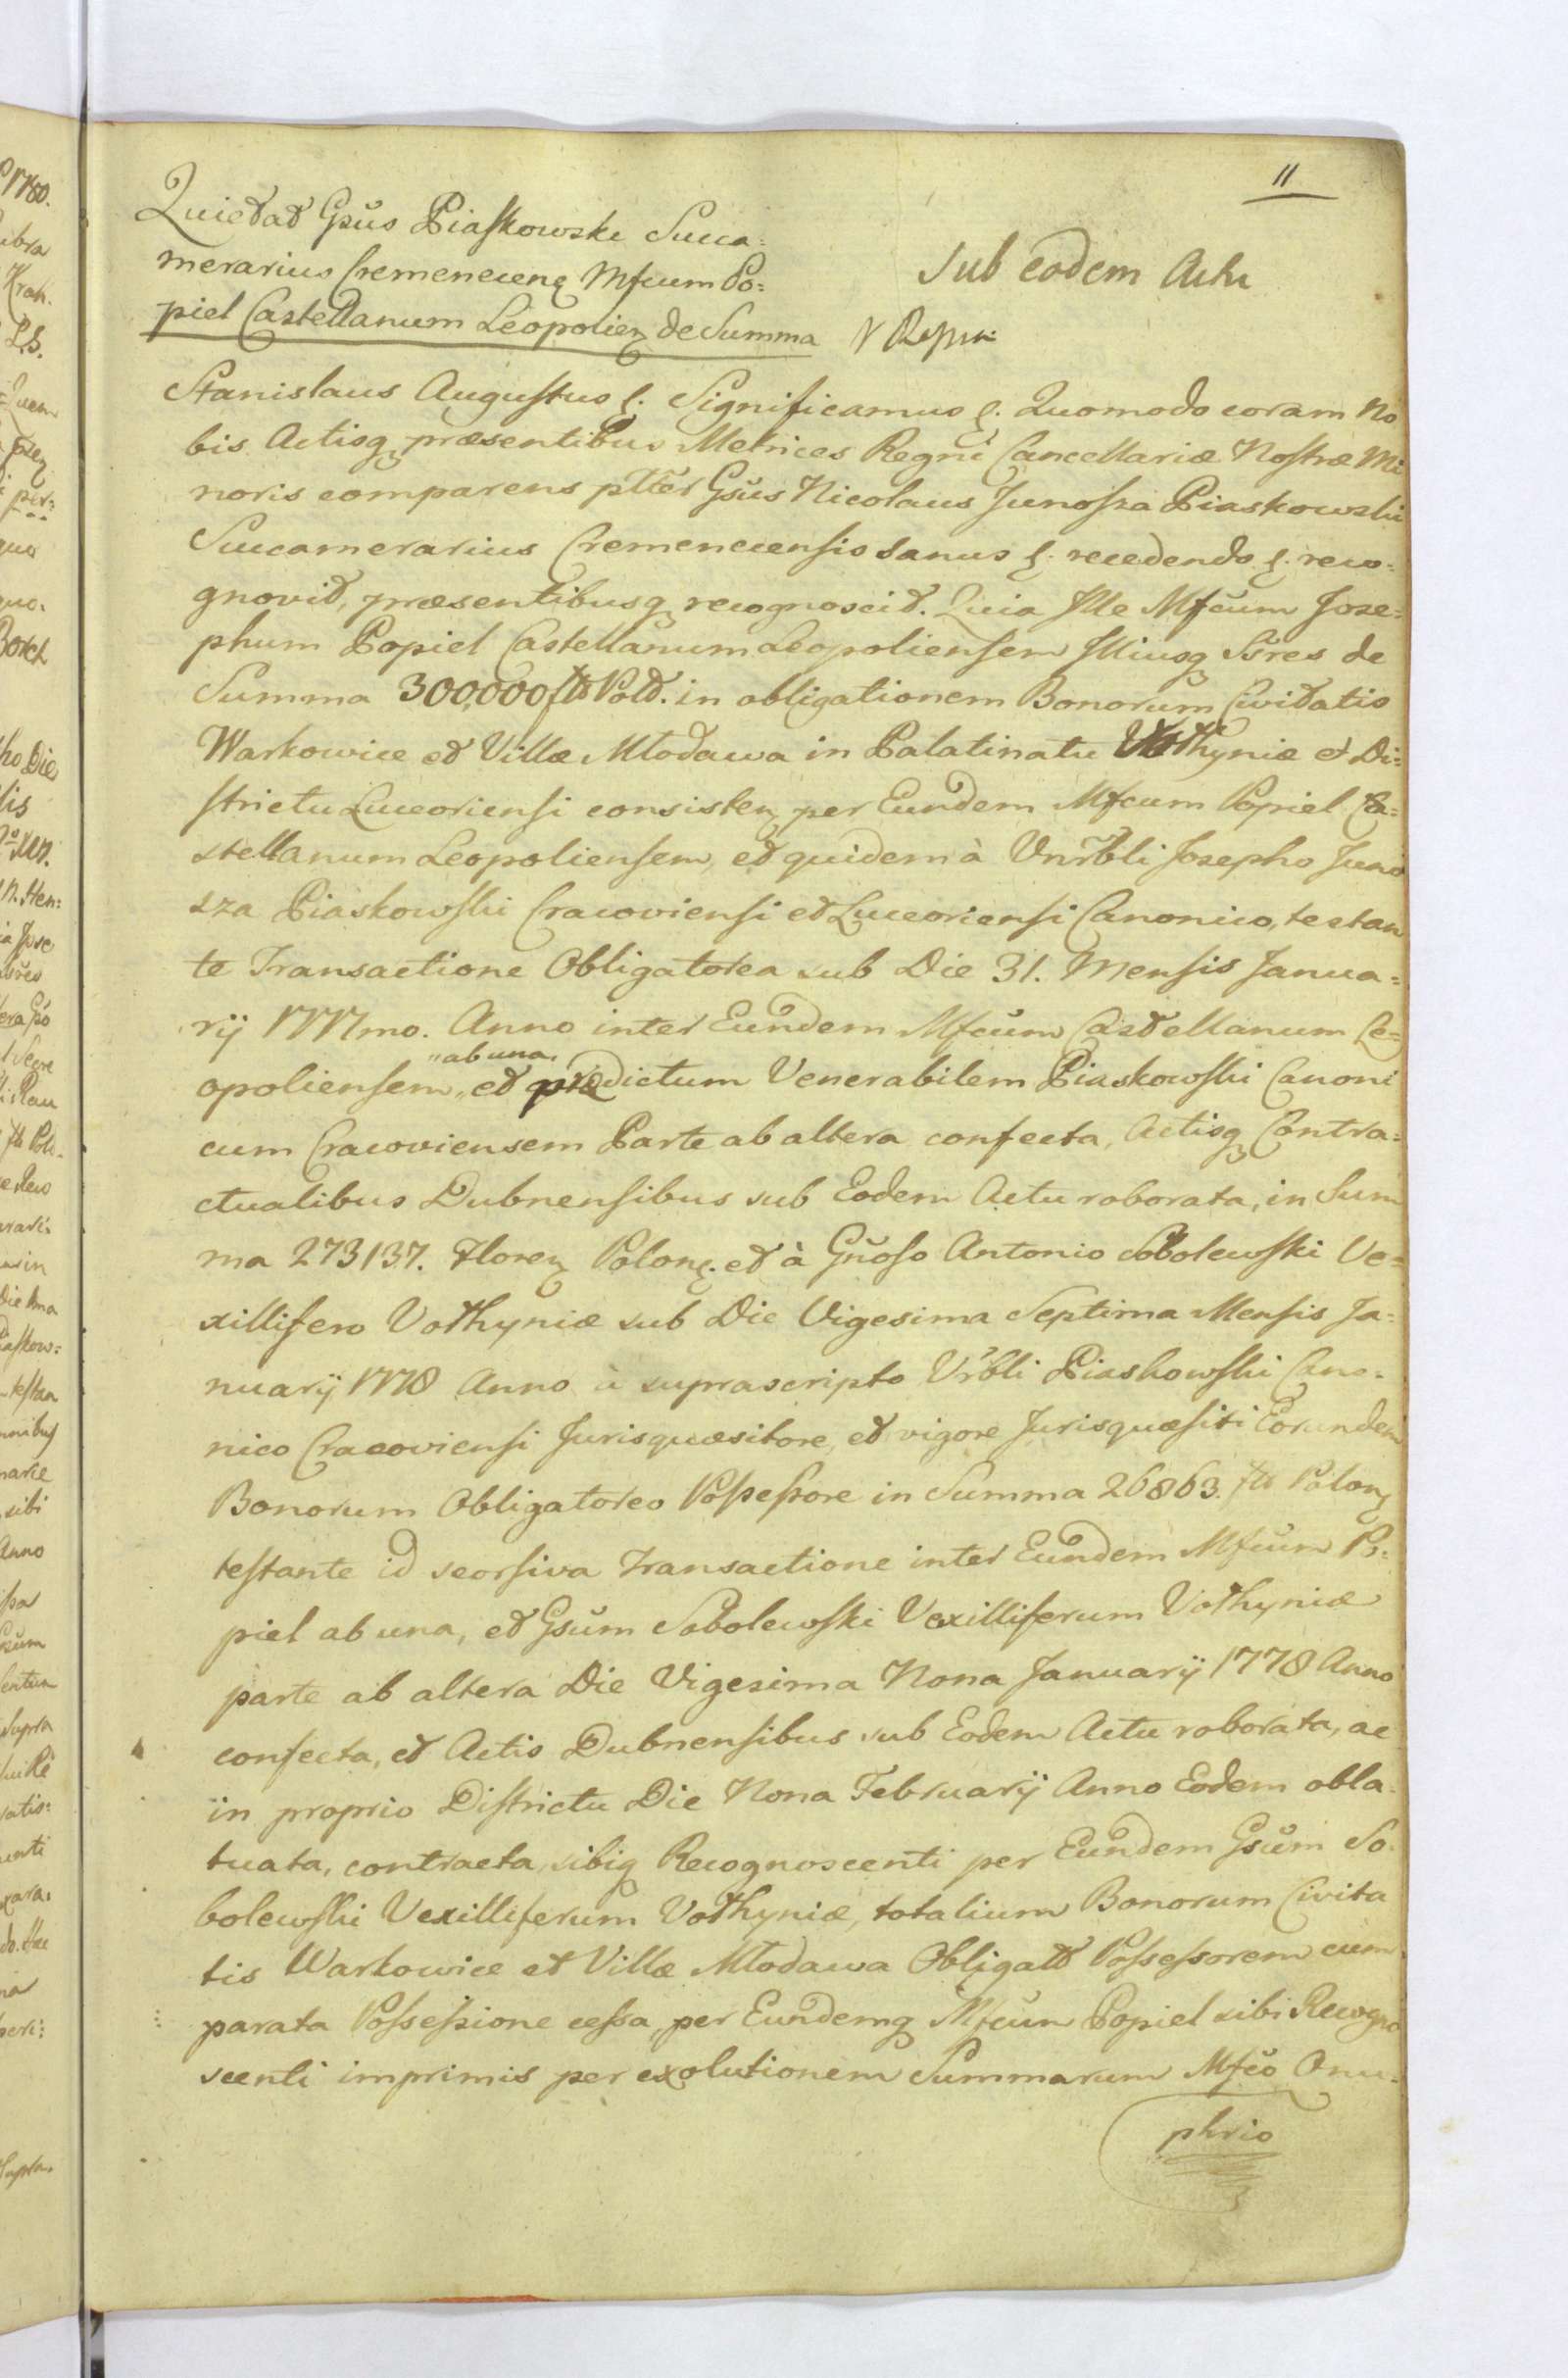 11
Quietat Gsus Piaskowski Succa=
merarius Cremenecen Mfcum Po=
piel Castellanum Leopolien de Summa
Sub eodem Actu
Stanislaus Augustus &. Significamus &. Quomodo coram No
bis Actisq præsentibus Metrices Regni Cancellariæ Nostræ Mi
noris comparens pltter Gsus Nicolaus Junosza Piaskowski
Succamerarius Cremenecensis sanus &. recedendo &. reco=
gnovit, præsentibusq recognoscit. Quia Ille Mfcum Jose=
phum Popiel Castellanum Leopoliensem Illiusq Ssres de
Summa 300,000 fts Poll. in obligationem Bonorum Civitatis
Warkowice et Villæ Młodawa in Palatinatu Volhyniæ et Di=
strictu Luceoriensi consisten per Eundem Mfcum Popiel Ca=
stellanum Leopoliensem, et quidem à Vnrbli Josepho Juno
sza Piaskowski Cracoviensi et Luceoriensi Canonico, testan
te Transactione Obligatorea sub Die 31. Mensis Janua=
rij 1777mo. Anno inter Eundem Mfcum Castellanum Le=
opoliensem, "ab una, et prædictum Venerabilem Piaskowski Canoni
cum Cracoviensem Parte ab altera confecta, Actisq Contra=
ctualibus Dubnensibus sub Eodem Actu roborata, in Sum
ma 273137. Floren Polon. et à Gnoso Antonio Sobolewski Ve=
xillifero Volhyniæ sub Die Vigesima Septima Mensis Ja=
nuarij 1778 Anno à suprascripto Vrbli Piaskowski Cano=
nico Cracoviensi Jurisquæsitore, et vigore Jurisquæsiti Eorundem
Bonorum Obligatoreo Possessore in Summa 26863. fts Polon
testante id seorsiva Transactione inter Eundem Mfcum Po=
piel ab una, et Gsum Sobolewski Vexilliferum Volhyniæ
parte ab altera Die Vigesima Nona Januarij 1778 Anno
confecta, et Actis Dubnensibus sub Eodem Actu roborata, ac
in proprio Districtu Die Nona Februarij Anno Eodem obla=
tuata, contracta, sibiq Recognoscenti per Eundem Gsum So=
bolewski Vexilliferum Volhyniæ, totalium Bonorum Civita
tis Warkowice et Villæ Młodawa Obligatt Possessorem cum
parata Possessione cessa, per Eundemq Mfcum Popiel sibi Recogno
scenti imprimis per exolutionem Summarum Mfco Onu=
phrio